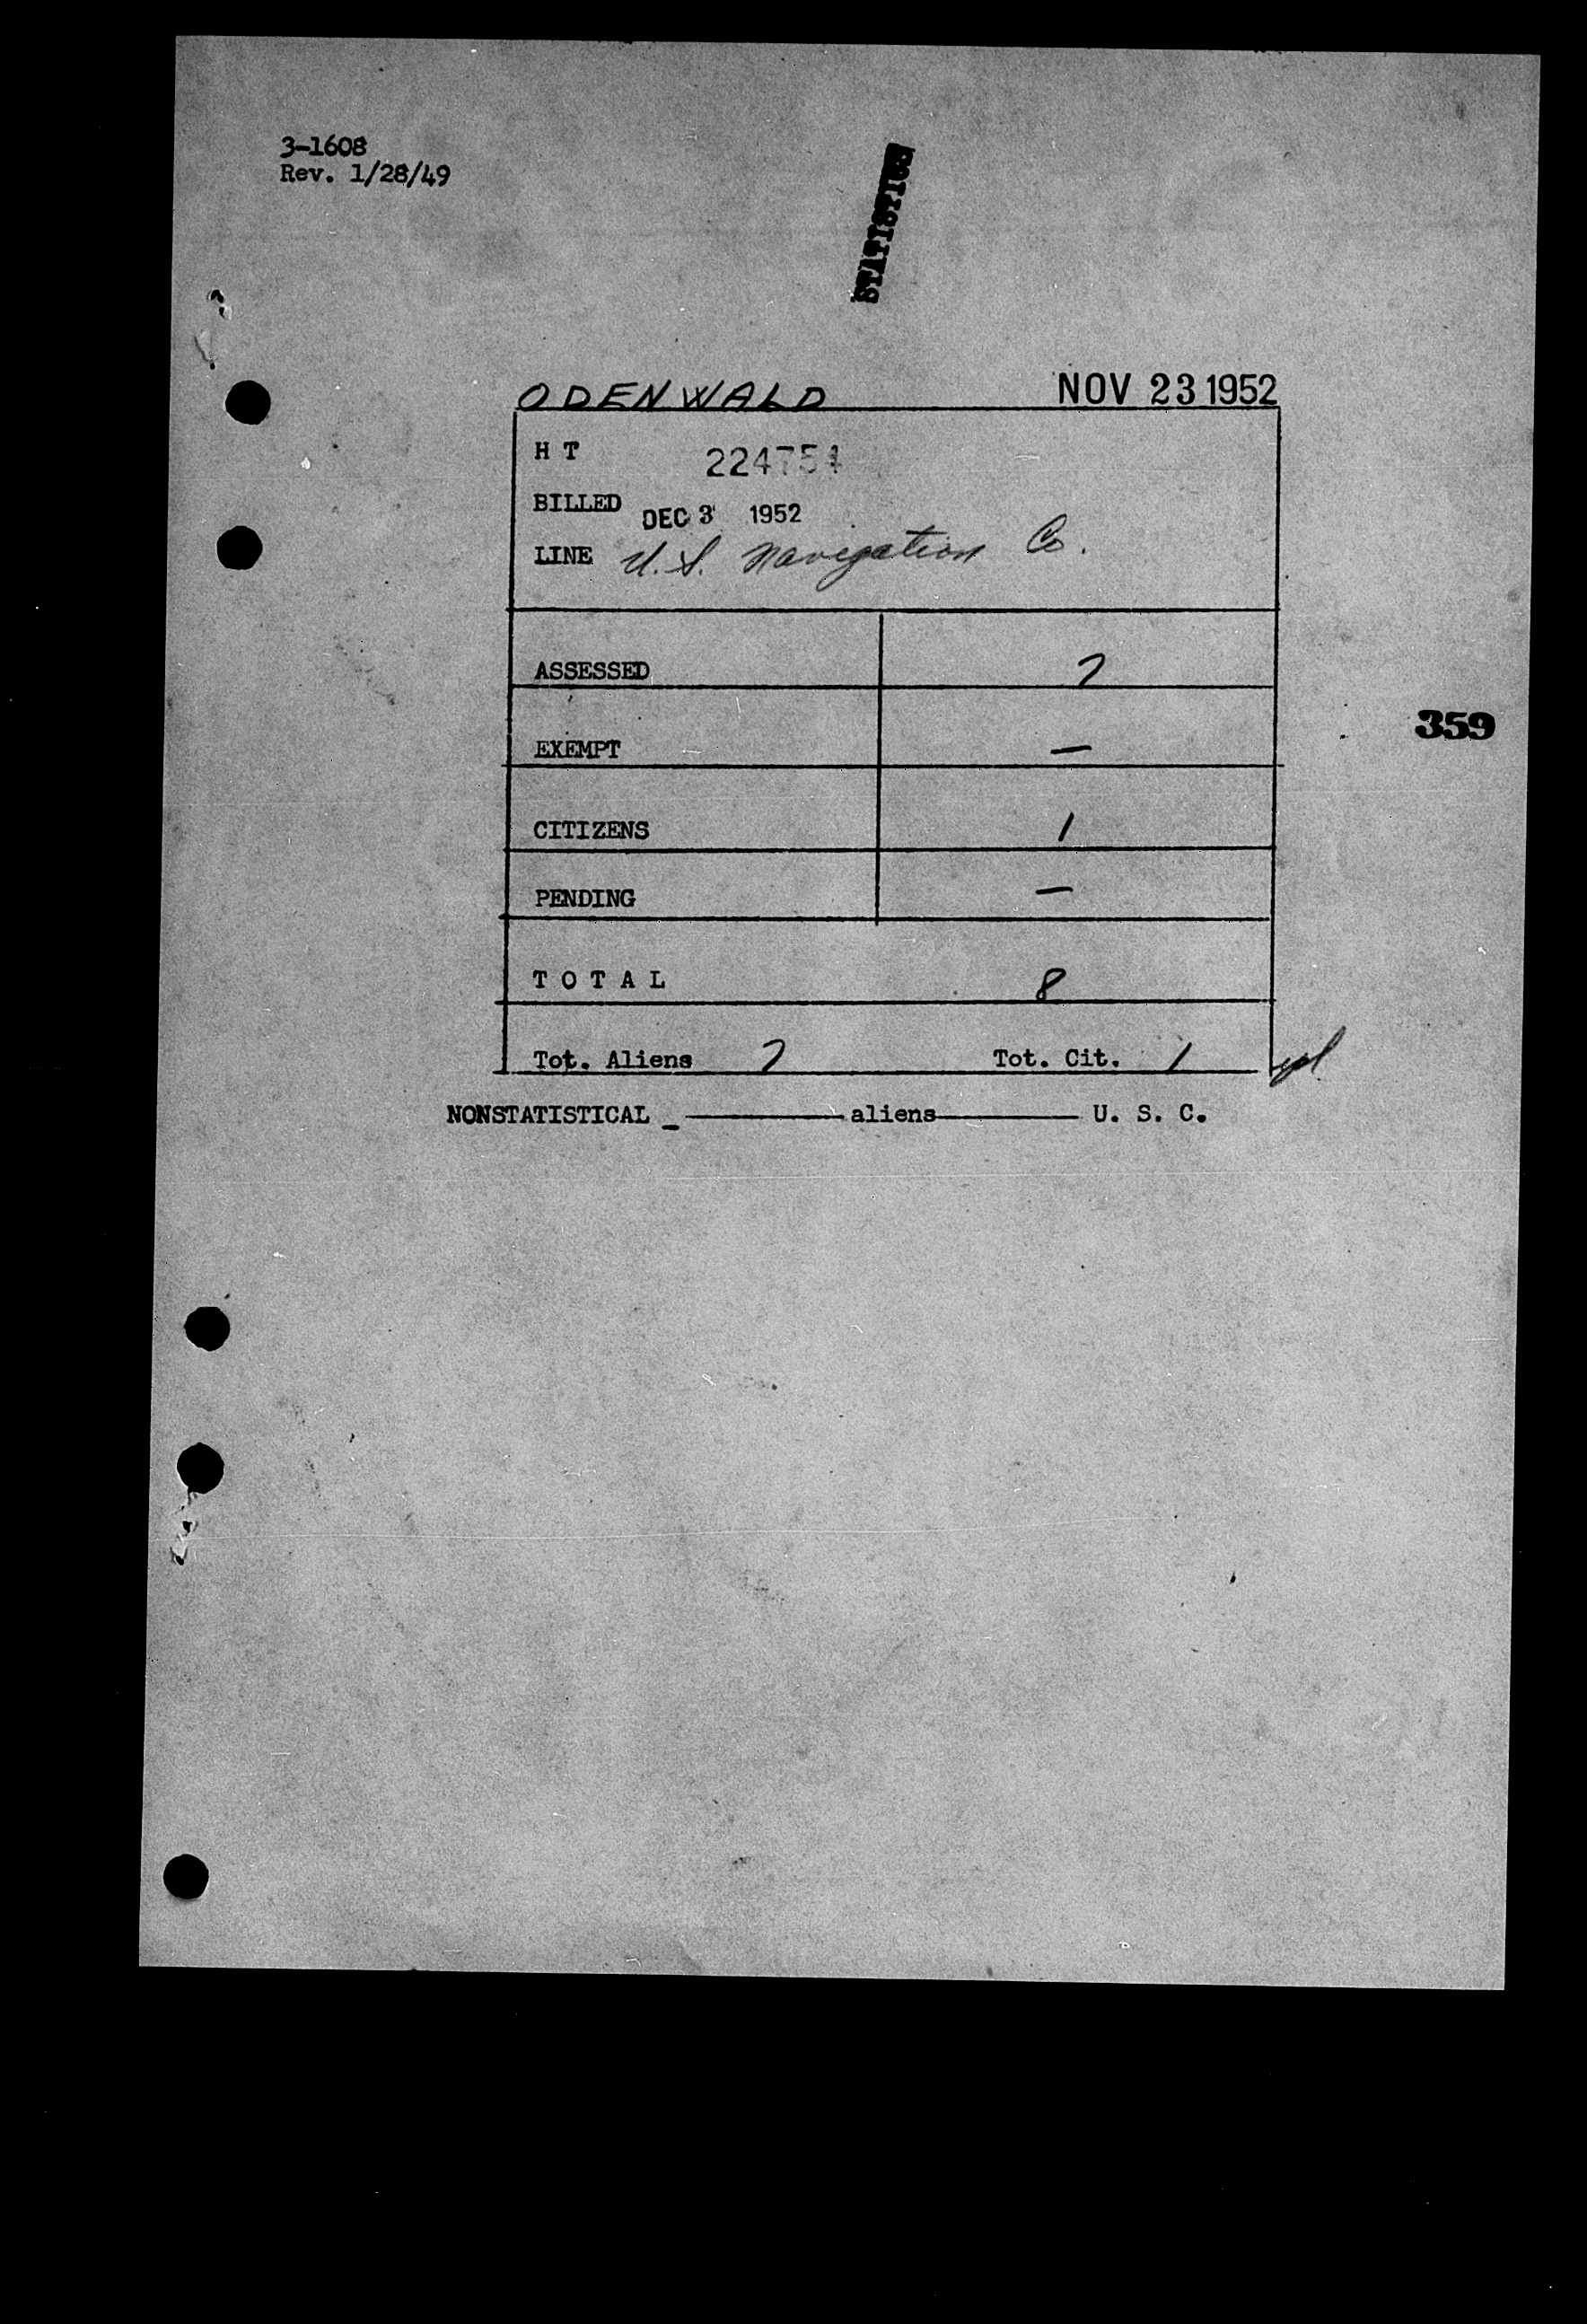 3-1608
Rev. 1/28/49
STATISTICS
ODENWALD NOV 23 1952
H T 224754
BILLED DEC 3 1952
LINE U. S. Navigation Co.
ASSESSED 7
359
EXEMPT —
CITIZENS 1
PENDING —
T O T A L 8
Tot. Aliens 7 Tot. Cit. 1
NONSTATISTICAL _ ———— aliens ———— U. S. C.